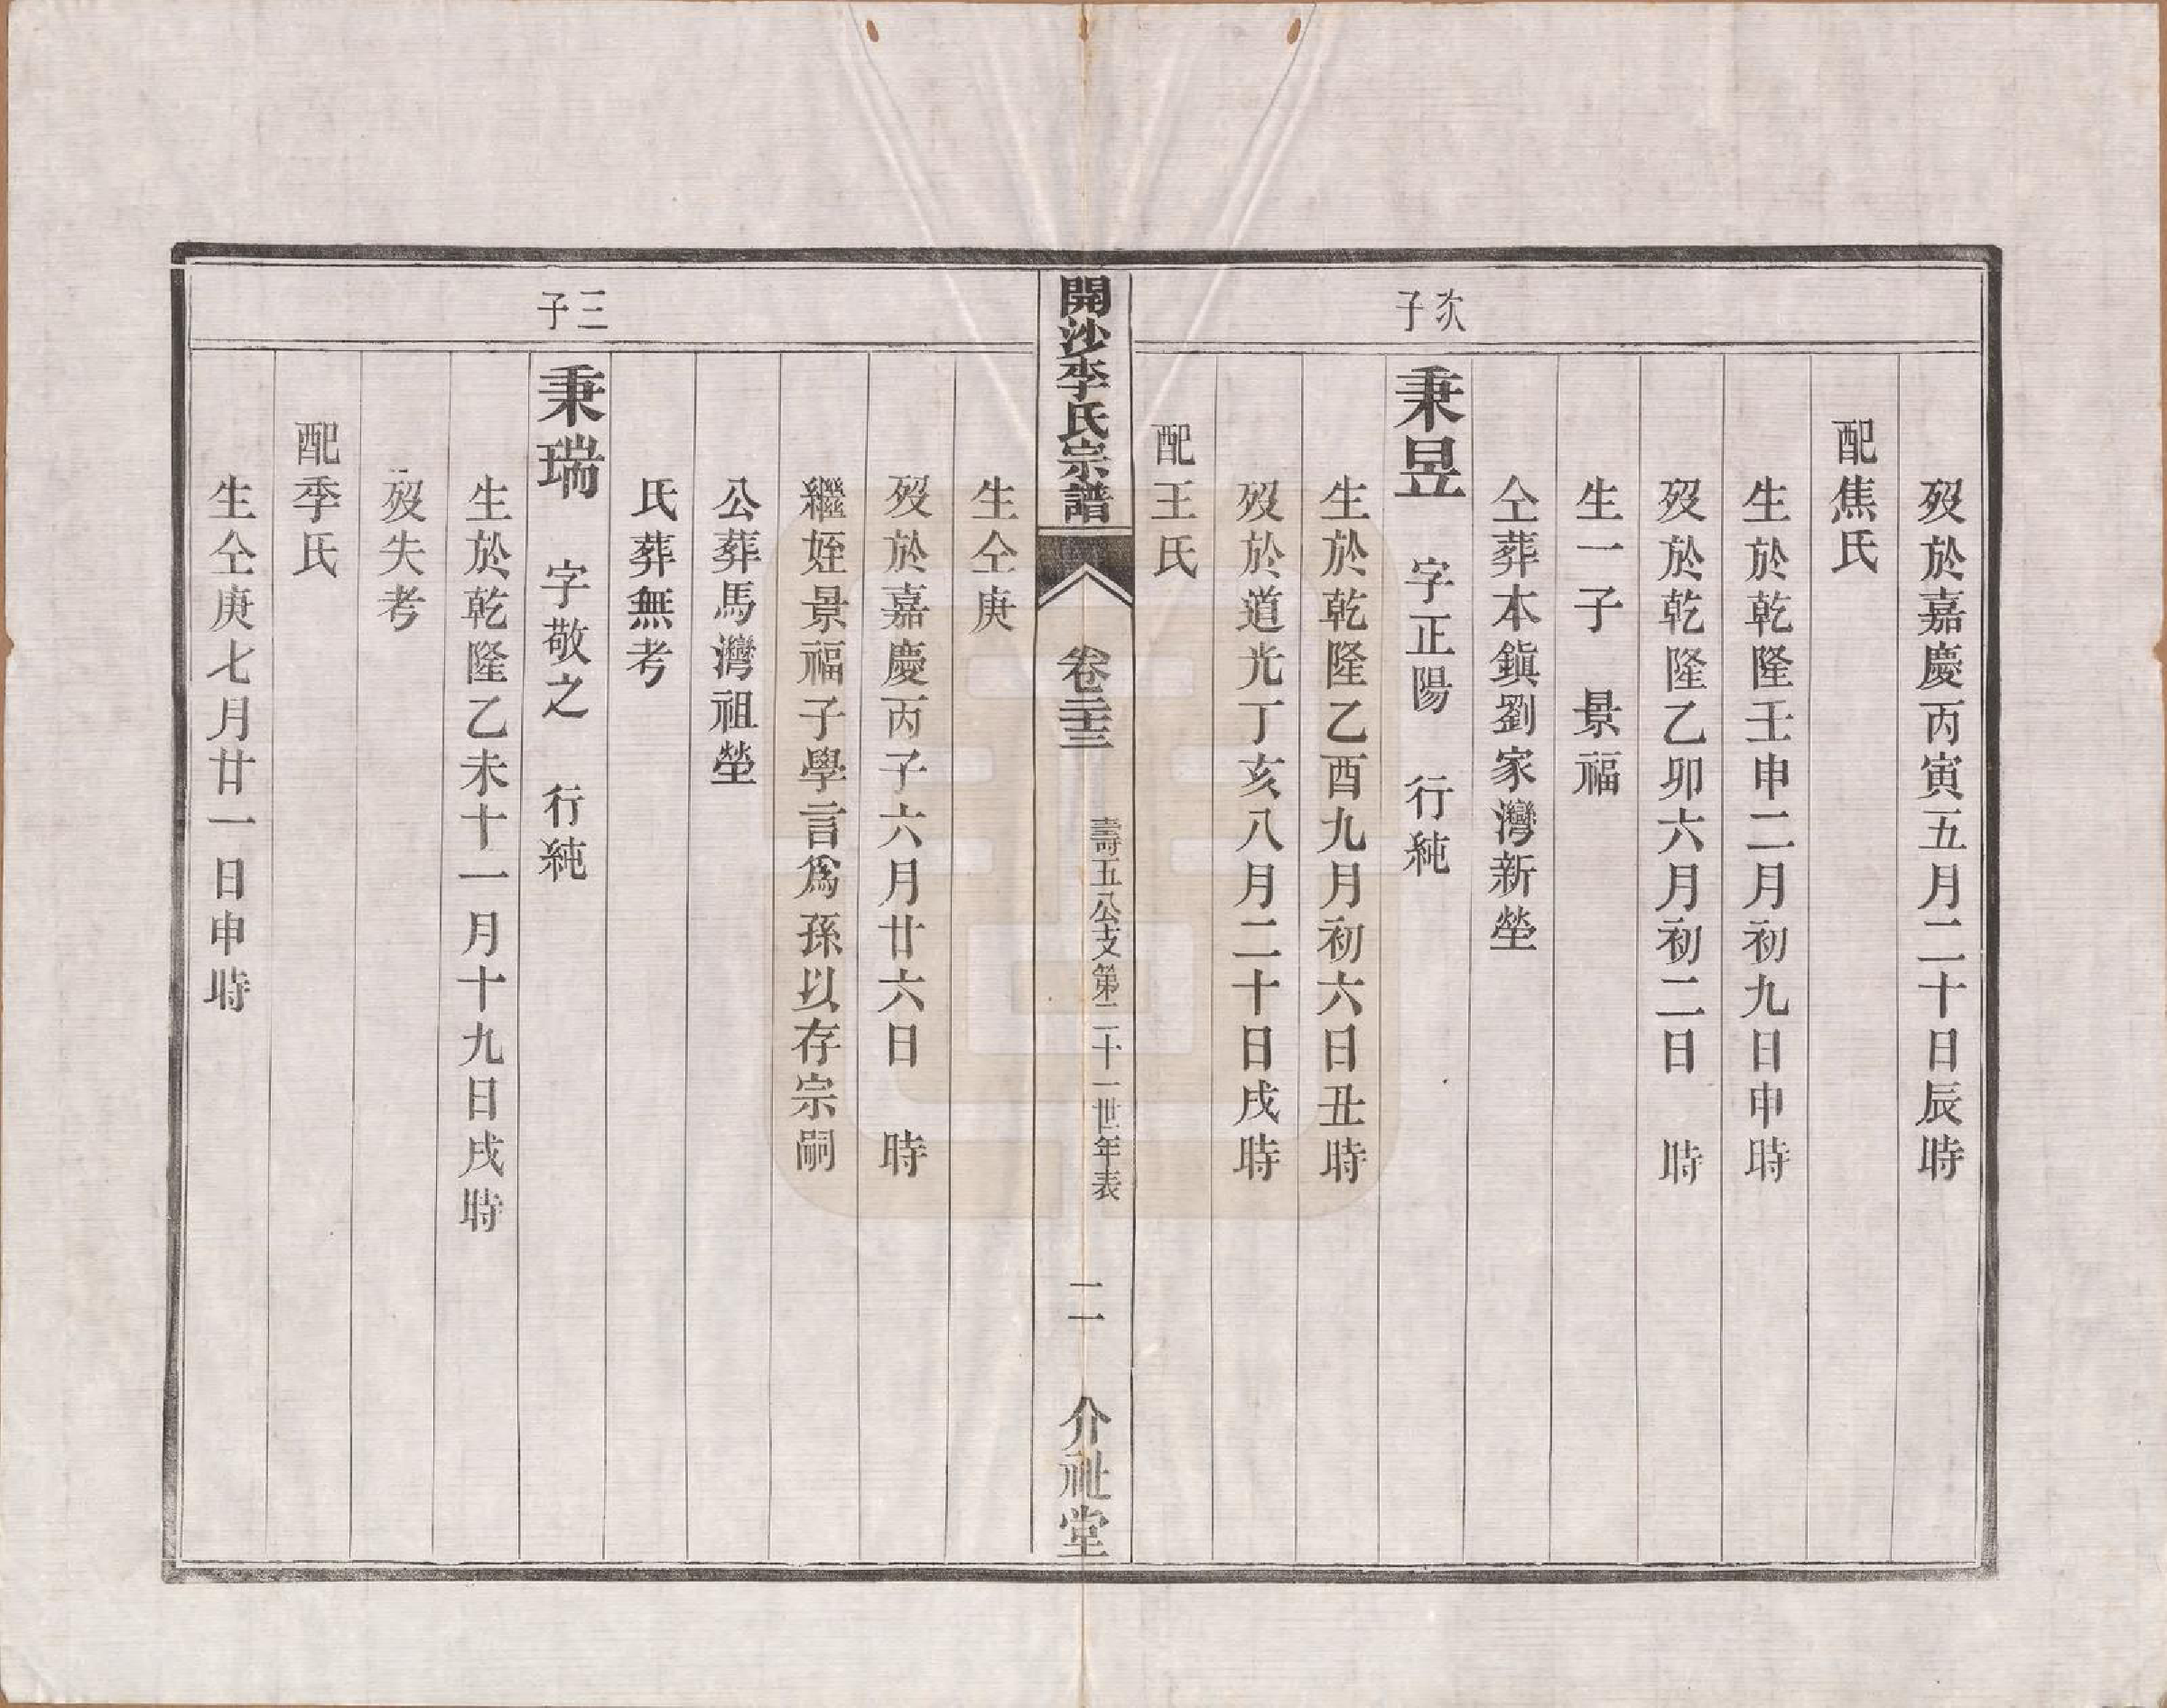 次子
歿於嘉慶丙寅五月二十日辰時
配焦氏
生於乾隆壬申二月初九日申時
歿於乾隆乙卯六月初二日　時
生一子　景福
仝葬本鎭劉家灣新塋
秉昱　字正陽　行純
生於乾隆乙酉九月初六日丑時
歿於道光丁亥八月二十日戌時
配王氏
開沙李氏宗譜
卷二十三
壽五公支第二十一世年表
二
介祉堂
三子
生仝庚
歿於嘉慶丙子六月廿六日　時
繼姪景福子學言爲孫以存宗嗣
公葬馬灣祖塋
氏葬無考
秉瑞　字敬之　行純
生於乾隆乙未十一月十九日戌時
歿失考
配季氏
生仝庚七月廿一日申時